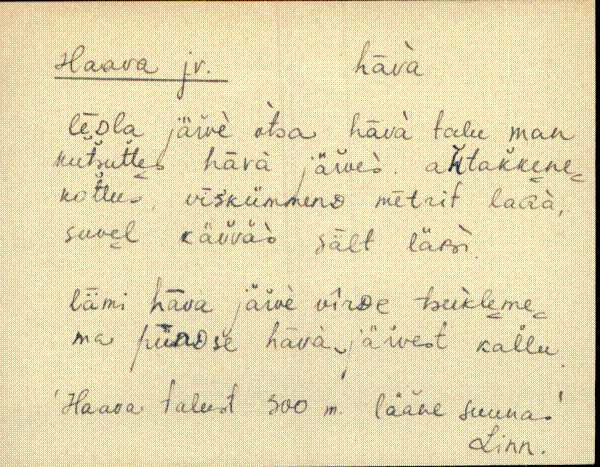 Haava jv. hāvà
lēDla järvè òtsa hāvà talu man
kutsuttes hāvà järves. ahtakkene
kottus, vīskümmend mētrit laǵà,
suvel käüväs sält läbi.
lämi hāva järvè vīrde tsukleme
ma püüdse hāvà järvest kallu
'Haava talust 500 m lääne suunas'
Linn.